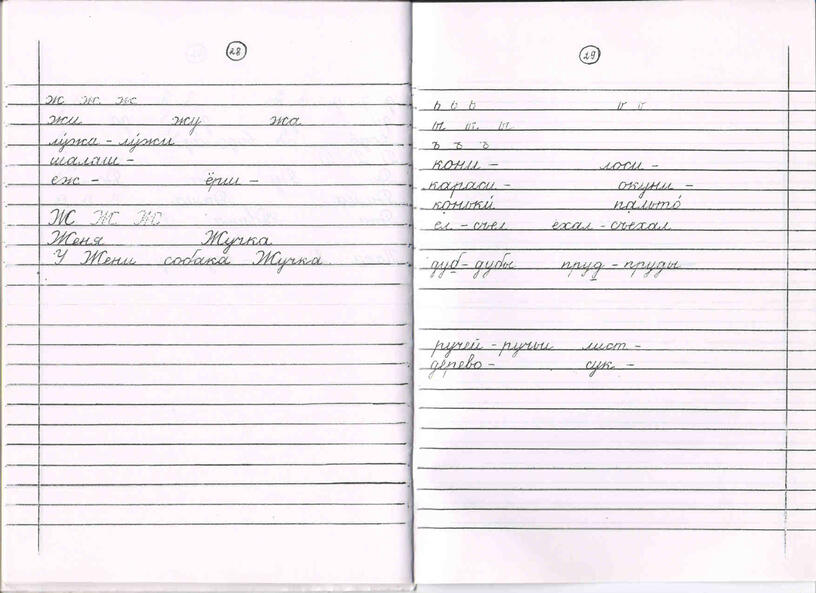 28
ж ж ж
жи жу жа
лу́жа - лу́жи
шалаш -
ёж - ёрш -
Ж Ж Ж
Женя Жучка
У Жени собака Жучка
29
ь ь ь
ы ы ы
ъ ъ ъ
кони - лоси -
караси - окуни -
коньки́ пальто́
ел - съел ехал - съехал
дуб - дубы пруд - пруды
ручей - ручьи лист -
дерево - сук -